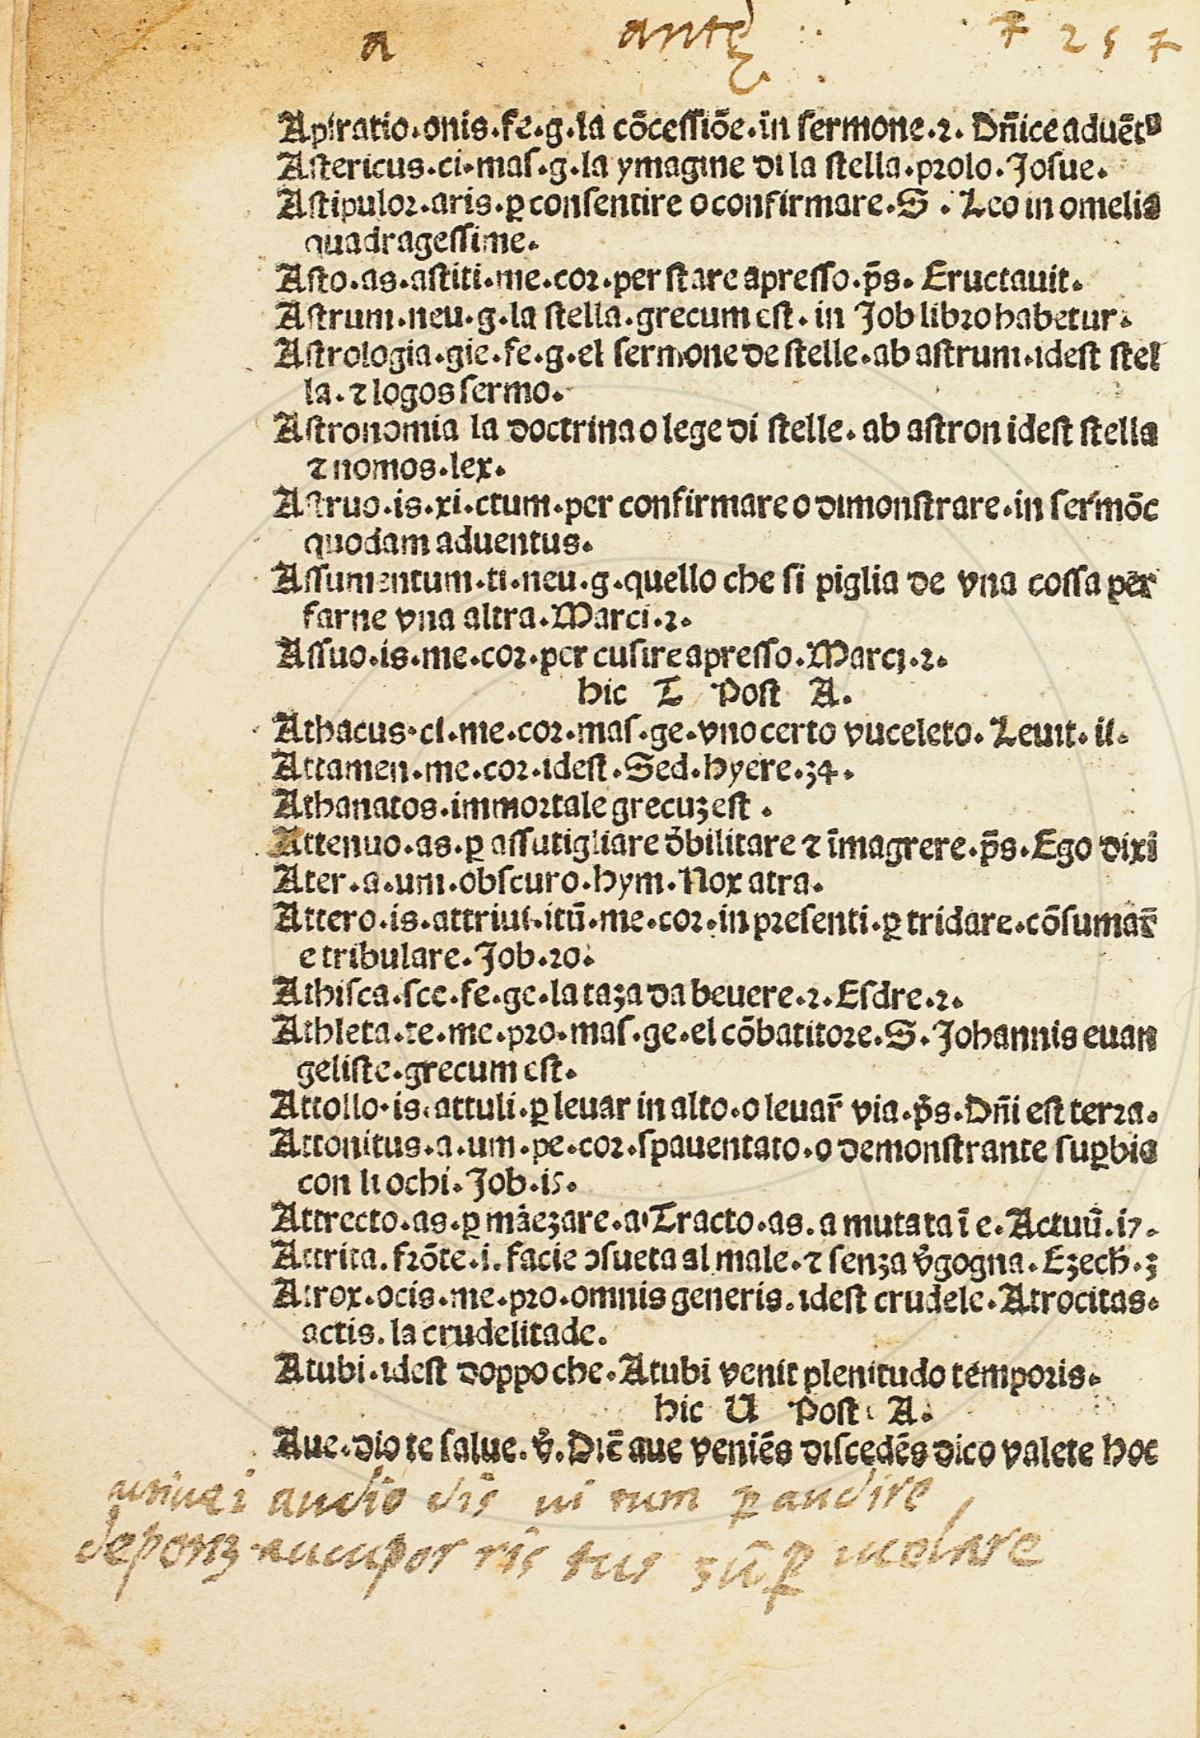 a ante 7 2 5 7
Apiratio.onis.fe.g.la cõcessiõe.in sermone.2. Dñice aduẽtꝰ
Astericus.ci.mas.g.la ymagine di la stella.prolo.Josue.
Astipulor.aris.ꝑ consentire o confirmare.S. Leo in omelia
quadragessime.
Asto.as.astiti.me.cor.per stare apresso.p̄s. Eructauit.
Astrum.neu.g.la stella.grecum est.in Job libro habetur.
Astrologia.gie.fe.g.el sermone de stelle.ab astrum.idest stel
la.⁊ logos sermo.
Astronomia la doctrina o lege di stelle.ab astron idest stella
⁊ nomos.lex.
Astruo.is.xi.ctum.per confirmare o dimonstrare.in sermõe
quodam aduentus.
Assumentum.ti.neu.g.quello che si piglia de vna cossa per
farne vna altra.Marci.2.
Assuo.is.me.cor.per cusire apresso.Marci.2.
hic T Post A.
Athacus.ci.me.cor.mas.ge.vno certo vuceleto. Leuit.ii.
Attamen.me.cor.idest.Sed.hyere.34.
Athanatos.immortale grecuz est.
Attenuo.as.ꝑ assutigliare d̄bilitare ⁊ ĩmagrere.p̄s.Ego dixi
Ater.a.um.obscuro.hym.Nox atra.
Attero.is.attriui.itũ.me.cor.in presenti.ꝑ tridare.cõsumar̄
e tribulare.Job.20.
Athisca.sce.fe.ge.la taza da beuere.2.Esdre.2.
Athleta.te.me.pro.mas.ge.el cõbatitore.S.Johannis euan
geliste.grecum est.
Attollo.is.attuli.ꝑ leuar in alto.o leuar̄ via.p̄s.Dñi est terra.
Attonitus.a.um.pe.cor.spauentato.o demonstrante suꝑbia
con li ochi.Job.15.
Attrecto.as.ꝑ mãezare.a Tracto.as.a mutata ĩ e.Actuũ.17.
Attrita.frõte.i.facie ɔsueta al male.⁊ senza v̄gogna.Ezech̄.3
Atrox.ocis.me.pro.omnis generis.idest crudele.Atrocitas.
actis.la crudelitade.
Atubi.idest doppo che.Atubi venit plenitudo temporis.
hic U Post A.
Aue.dio te salue.v̄.Dic̄ aue veniẽs discedẽs dico valete hoc
audio dis ui tum ꝑ audire
aucupor ris tus ꝑ